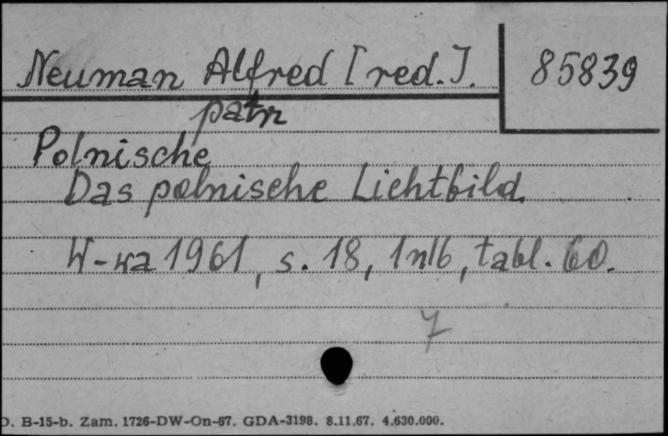 Neuman Alfred [red.]. 85839
patrz
Polnische
Das polnische Lichtbild.
W-wa 1961, s. 18, 1nlb, tabl. 60.
7
D. B-15-b. Zam. 1726-DW-On-67. GDA-3198. 8.11.67. 4.630.000.